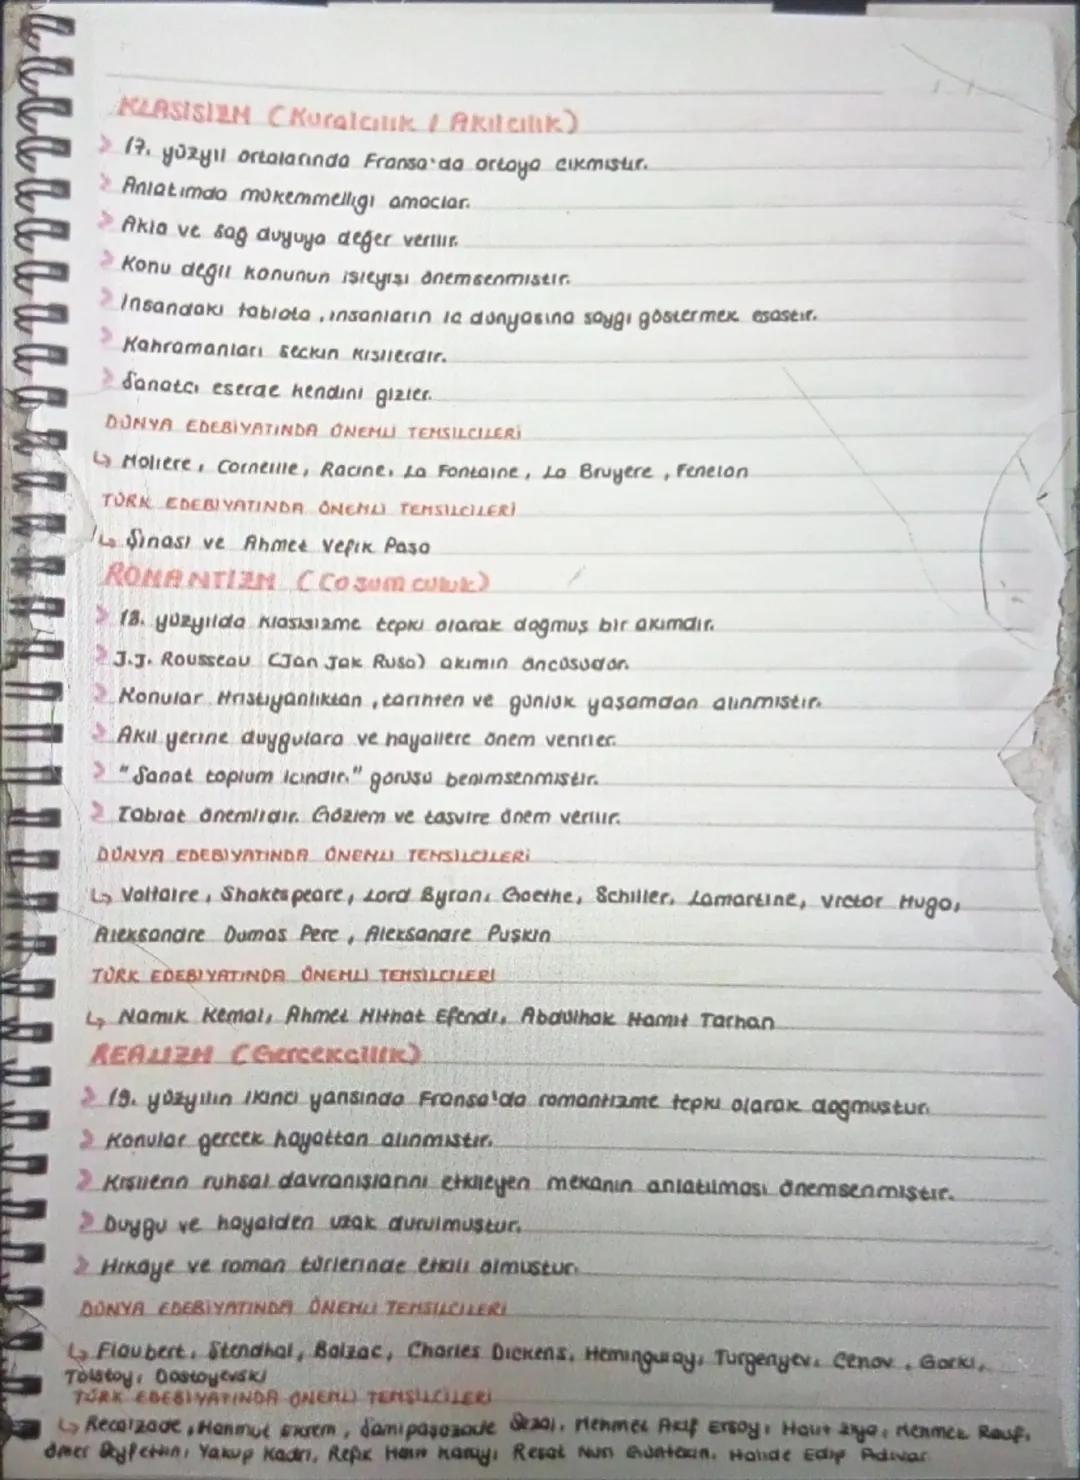 KLASISIZM (Kuralcılık / Akılcılık)
> 17. yüzyıl ortalarında Fransa'da ortaya cıkmıstır.
> Anlatımda mükemmellıgı amaclar.
> Akla ve sağ duyuya değer verılır.
> Konu değıl konunun ısleyısı önemsenmıstır.
> Insandakı tabıata, ınsanların ıc dünyasına saygı göstermek esastır.
> Kahramanları seckın kısılerdır.
> Sanatcı eserde kendını gızler.
DÜNYA EDEBİYATINDA ÖNEMLİ TEMSİLCİLERİ
↳ Molıere, Corneılle, Racıne, La Fontaıne, La Bruyere, Fenelon
TÜRK EDEBİYATINDA ÖNEMLİ TEMSİLCİLERİ
↳ Şınası ve Ahmet Vefık Pasa
ROMANTİZM (Cosumculuk)
> 18. yüzyılda klasısızme tepkı olarak dogmuş bır akımdır.
> J.J. Rousseau (Jan Jak Ruso) akımın öncüsüdür.
> Konular Hrıstıyanlıktan, tarıhten ve günlük yaşamdan alınmıstır.
> Akıl yerıne duygulara ve hayallere önem verırler.
> "Sanat toplum ıcındır." görüsü benımsenmıstır.
> Tabıat önemlıdır. Gözlem ve tasvıre önem verılır.
DÜNYA EDEBİYATINDA ÖNEMLİ TEMSİLCİLERİ
↳ Voltaıre, Shakespeare, Lord Byron, Goethe, Schıller, Lamartıne, Vıctor Hugo,
Aleksandre Dumas Pere, Aleksandre Puşkın
TÜRK EDEBİYATINDA ÖNEMLİ TEMSİLCİLERİ
↳ Namık Kemal, Ahmet Mıthat Efendı, Abdülhak Hamıt Tarhan
REALIZM (Gercekcılık)
> 19. yüzyılın ıkıncı yarısında Fransa'da romantızme tepkı olarak dogmustur.
> Konular gercek hayattan alınmıstır.
> Kısılerın ruhsal davranışlarını etkıleyen mekanın anlatılması önemsenmıştır.
> Duygu ve hayalden uzak durulmuştur.
> Hıkaye ve roman türlerınde etkılı olmustur.
DÜNYA EDEBİYATINDA ÖNEMLİ TEMSİLCİLERİ
↳ Flaubert, Stendhal, Balzac, Charles Dıckens, Hemınguray, Turgenyev, Cenov, Gorkı,
Tolstoy, Dostoyevskı
TÜRK EDEBİYATINDA ÖNEMLİ TEMSİLCİLERİ
↳ Recaızade, Mahmut Ekrem, Samıpaşazade Sezaı, Mehmet Akıf Ersoy, Halıt Zıya, Mehmet Rauf,
Ömer Seyfettın, Yakup Kadrı, Refık Halıt Karay, Resat Nurı Güntekın, Halıde Edıp Adıvar